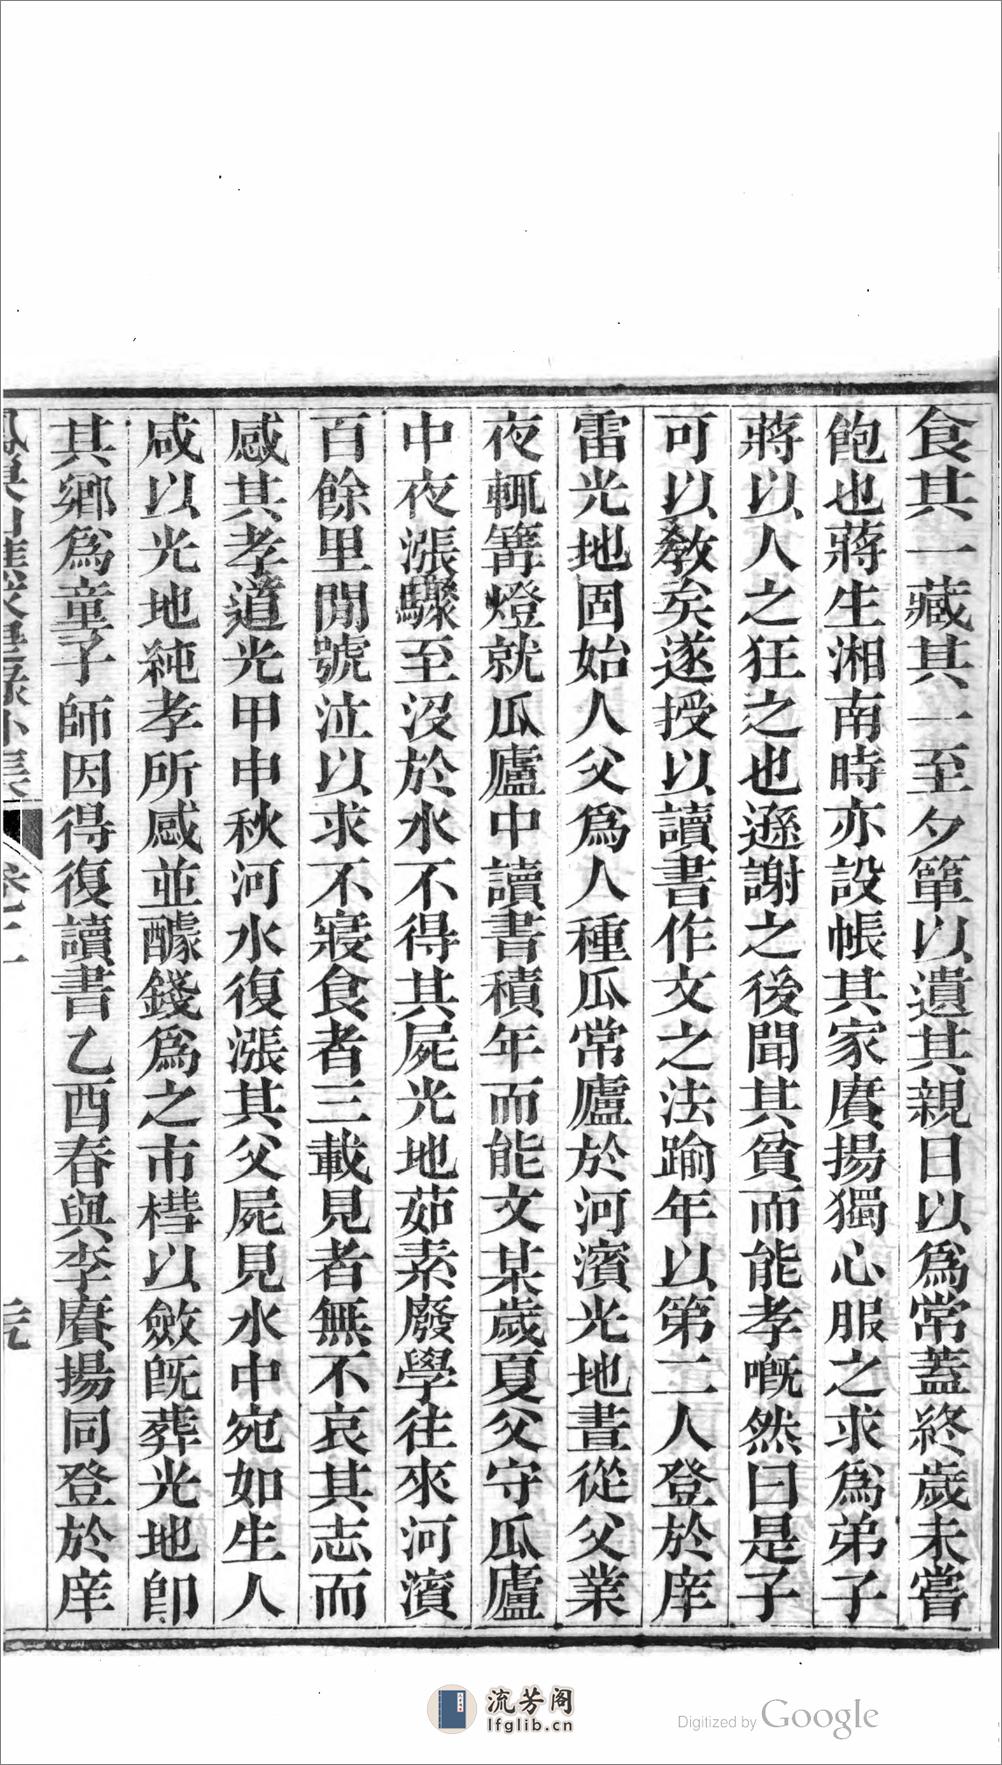 食其一藏其一至夕簞以遺其親日以爲常蓋終歲未嘗
飽也蔣生湘南時亦設帳其家賡揚獨心服之求爲弟子
蔣以人之狂之也遜謝之後聞其貧而能孝嘅然曰是子
可以敎矣遂授以讀書作文之法踰年以第二人登於庠
雷光地固始人父爲人種瓜常廬於河濱光地晝從父業
夜輒篝燈就瓜廬中讀書積年而能文某歲夏父守瓜廬
中夜漲驟至沒於水不得其屍光地茹素廢學往來河濱
百餘里閒號泣以求不寢食者三載見者無不哀其志而
感其孝道光甲申秋河水復漲其父屍見水中宛如生人
咸以光地純孝所感並醵錢爲之市槥以斂旣葬光地卽
其鄉爲童子師因得復讀書乙酉春與李賡揚同登於庠
卷十
流芳阁
lfglib.cn
Digitized by Google